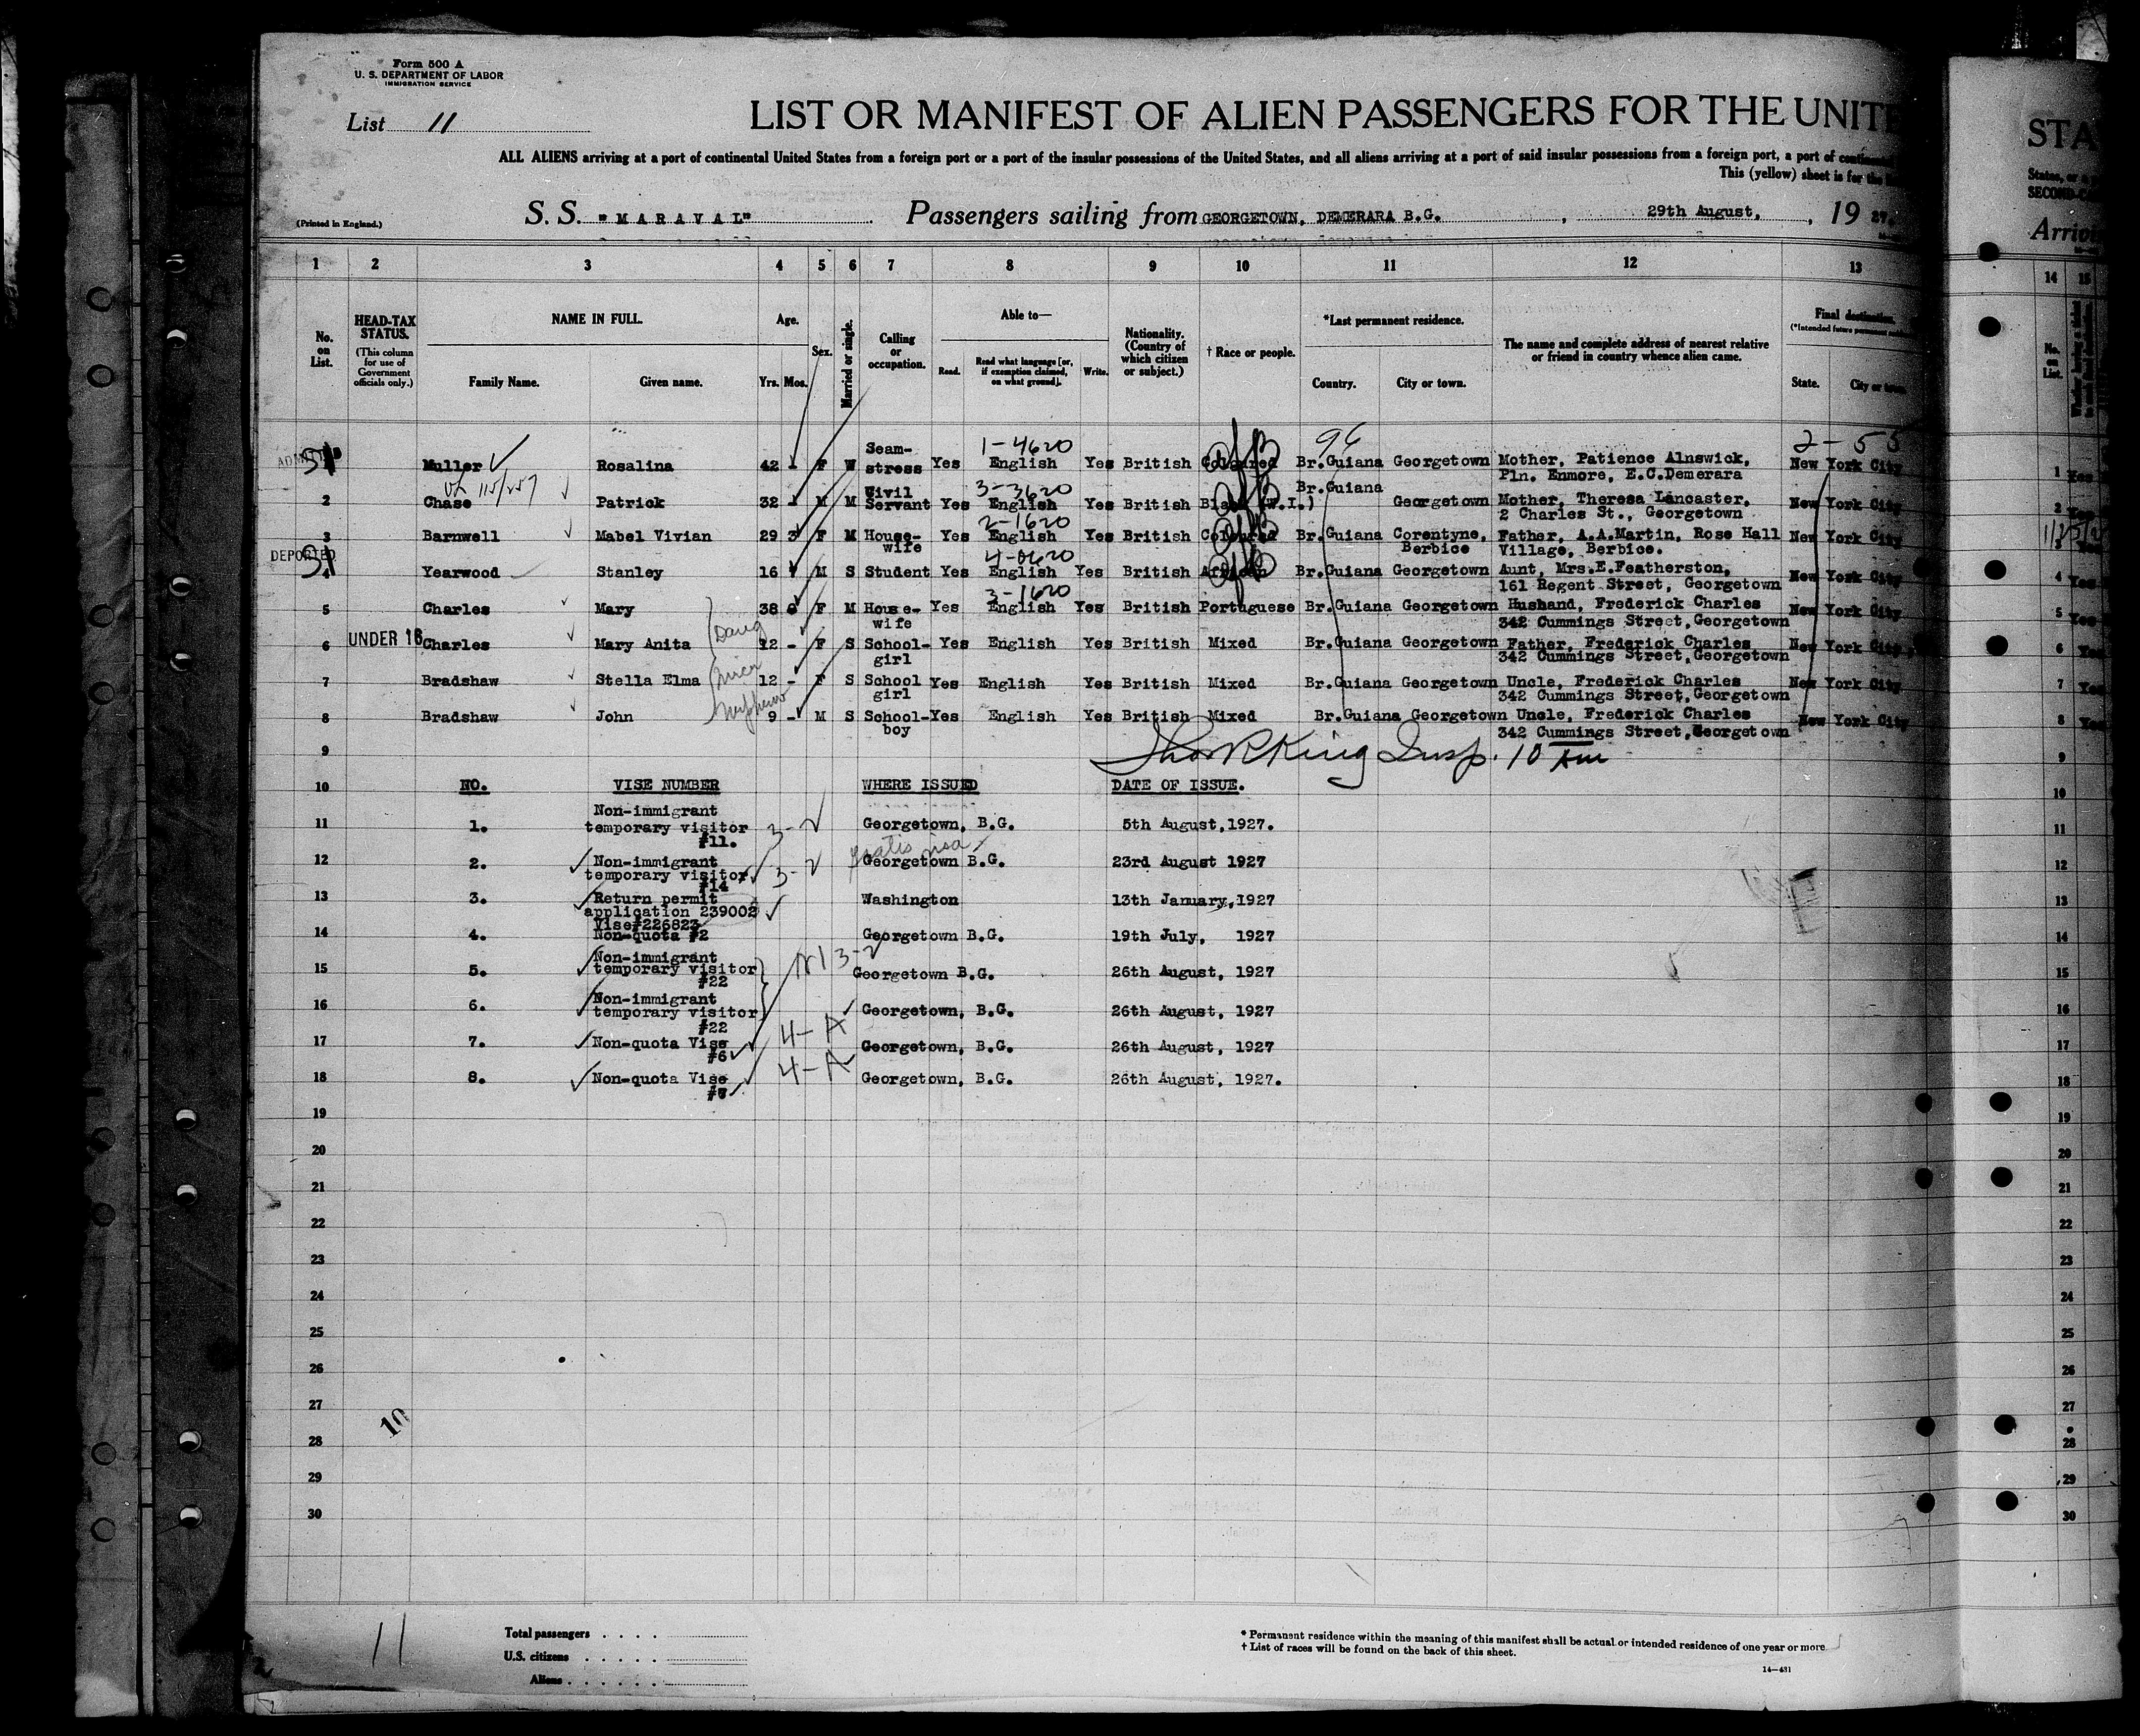 Form 500 A
U. S. DEPARTMENT OF LABOR
IMMIGRATION SERVICE
List 11
LIST OR MANIFEST OF ALIEN PASSENGERS FOR THE UNITE
ALL ALIENS arriving at a port of continental United States from a foreign port or a port of the insular possessions of the United States, and all aliens arriving at a port of said insular possessions from a foreign port, a port of
This (yellow) sheet is for the
(Printed in England.)
S. S. "MARAVAL" Passengers sailing from GEORGETOWN, DEMERARA B.G., 29th August, , 19 27.
1 2 3 4 5 6 7 8 9 10 11 12 13
No. on List.
HEAD-TAX STATUS.
(This column for use of Government officials only.)
NAME IN FULL.
Family Name. Given name.
Age.
Yrs. Mos.
Sex.
Married or single.
Calling or occupation.
Able to—
Read. Read what language [or, if exemption claimed, on what ground]. Write.
Nationality. (Country of which citizen or subject.)
† Race or people.
*Last permanent residence.
Country. City or town.
The name and complete address of nearest relative or friend in country whence alien came.
Final destination.
(*Intended future permanent
State. City or town.
1-4620 96 2-55
Muller Rosalina 42 - F W Seam-stress Yes English Yes British Coloured Br.Guiana Georgetown Mother, Patience Alnswick,
Pln. Enmore, E.C.Demerara New York City
3-3620
2 Chase Patrick 32 - M M Civil Servant Yes English Yes British Black (W.I.) Br.Guiana Georgetown Mother, Theresa Lancaster,
2 Charles St., Georgetown New York City
2-1620
3 Barnwell Mabel Vivian 29 3 F M House-wife Yes English Yes British Coloured Br.Guiana Corentyne, Berbice Father, A.A.Martin, Rose Hall
Village, Berbice. New York City
DEPORTED
4-0620
4 Yearwood Stanley 16 M S Student Yes English Yes British African Br.Guiana Georgetown Aunt, Mrs.E.Featherston,
161 Regent Street, Georgetown New York City
3-1620
5 Charles Mary 38 F M House-wife Yes English Yes British Portuguese Br.Guiana Georgetown Husband, Frederick Charles
342 Cummings Street,Georgetown New York City
Daug
6 UNDER 16 Charles Mary Anita 12 - F S School-girl Yes English Yes British Mixed Br.Guiana Georgetown Father, Frederick Charles
342 Cummings Street,Georgetown New York City
niece
7 Bradshaw Stella Elma 12 - F S School girl Yes English Yes British Mixed Br.Guiana Georgetown Uncle, Frederick Charles
342 Cummings Street,Georgetown New York City
nephew
8 Bradshaw John 9 - M S School-boy Yes English Yes British Mixed Br.Guiana Georgetown Uncle, Frederick Charles
342 Cummings Street,Georgetown New York City
9
10 NO. VISE NUMBER WHERE ISSUED DATE OF ISSUE.
11 1. Non-immigrant temporary visitor #11. 3-2 Georgetown, B.G. 5th August,1927.
gratis visa
12 2. Non-immigrant temporary visitor, #14 3-2 Georgetown B.G. 23rd August 1927
13 3. Return permit application 239002 Vise#226823 Washington 13th January,1927
14 4. Non-quota #2 Georgetown B.G. 19th July, 1927
15 5. Non-immigrant temporary visitor #22 3-2 Georgetown B.G. 26th August, 1927
16 6. Non-immigrant temporary visitor #22 Georgetown, B.G. 26th August, 1927
17 7. Non-quota Vise #6 4-A Georgetown, B.G. 26th August, 1927
18 8. Non-quota Vise #7 4-A Georgetown, B.G. 26th August, 1927.
19
20
21
22
23
24
25
26
27
28
29
30
10
11
Total passengers
U.S. citizens
Aliens
* Permanent residence within the meaning of this manifest shall be actual or intended residence of one year or more
† List of races will be found on the back of this sheet.
14—431
STA
States, or a
SECOND-CA
Arrivi
14 15
No. on List.
1 Yes
2 Yes
3 Yes
4 Yes
5 Yes
6 Yes
7 Yes
8 Yes
9
10
11
12
13
14
15
16
17
18
19
20
21
22
23
24
25
26
27
28
29
30